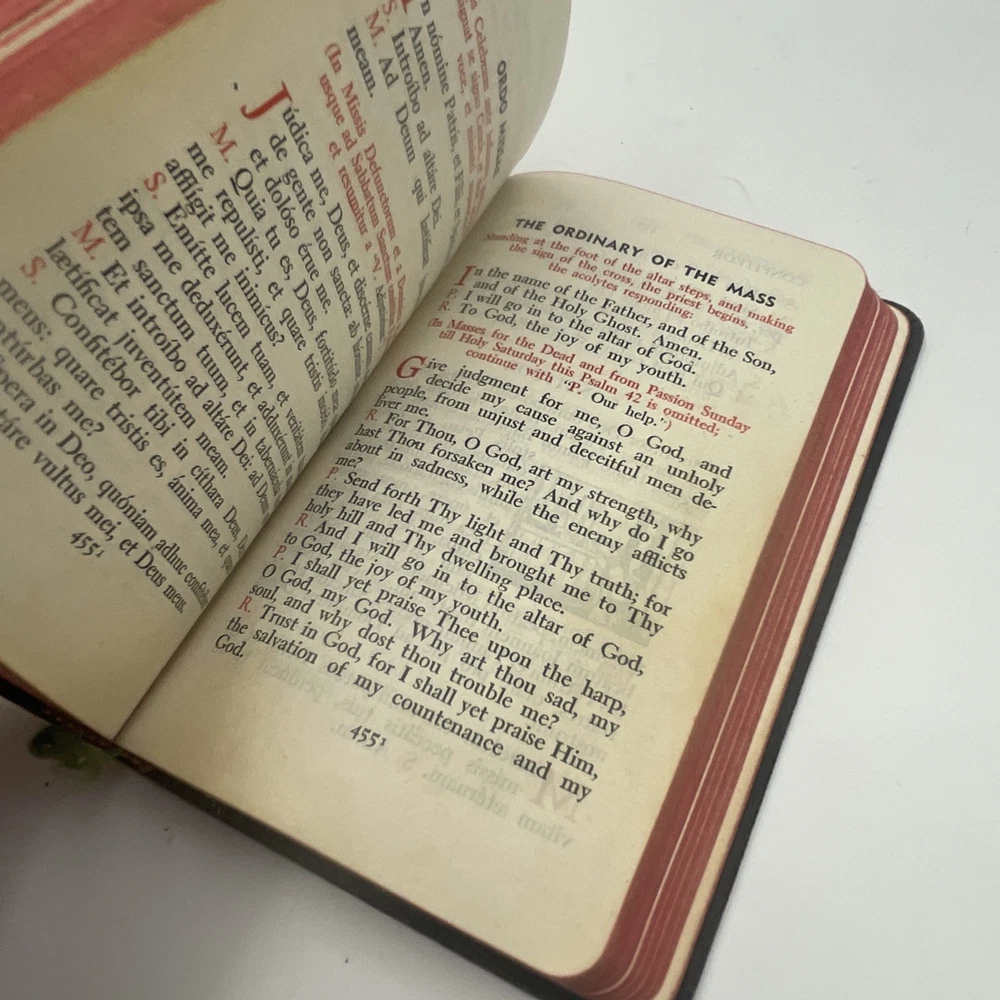 ORDO MISSÆ
nómine Patris, et Filii, et
Amen.
S. Introíbo ad altáre Dei.
M. Ad Deum qui lætíficat
meam.
(In Missis Defunctorum et a
usque ad Sabbatum Sanctum
et resumitur a
Júdica me, Deus, et discérne
de gente non sancta: ab
et dolóso érue me.
M. Quia tu es, Deus, fortitúdo
me repulísti, et quare tristis
afflígit me inimícus?
S. Emítte lucem tuam, et veritátem
ipsa me deduxérunt, et adduxérunt in
tem sanctum tuum, et in tabernácula
M. Et introíbo ad altáre Dei: ad Deum
lætíficat juventútem meam.
S. Confitébor tibi in cíthara Deus, Deus
meus: quare tristis es, ánima mea, et quare
me?
in Deo, quóniam adhuc confitébor
vultus mei, et Deus meus.
455¹
THE ORDINARY OF THE MASS
Standing at the foot of the altar steps, and making
the sign of the cross, the priest begins,
the acolytes responding:
In the name of the Father, and of the Son,
and of the Holy Ghost. Amen.
P. I will go in to the altar of God.
R. To God, the joy of my youth.
(In Masses for the Dead and from Passion Sunday
till Holy Saturday this Psalm 42 is omitted;
continue with "P. Our help.")
Give judgment for me, O God, and
decide my cause against an unholy
people, from unjust and deceitful men de-
liver me.
R. For Thou, O God, art my strength, why
hast Thou forsaken me? And why do I go
about in sadness, while the enemy afflicts
me?
P. Send forth Thy light and Thy truth; for
they have led me and brought me to Thy
holy hill and Thy dwelling place.
R. And I will go in to the altar of God,
to God, the joy of my youth.
P. I shall yet praise Thee upon the harp,
O God, my God. Why art thou sad, my
soul, and why dost thou trouble me?
R. Trust in God, for I shall yet praise Him,
the salvation of my countenance and my
God.
455¹